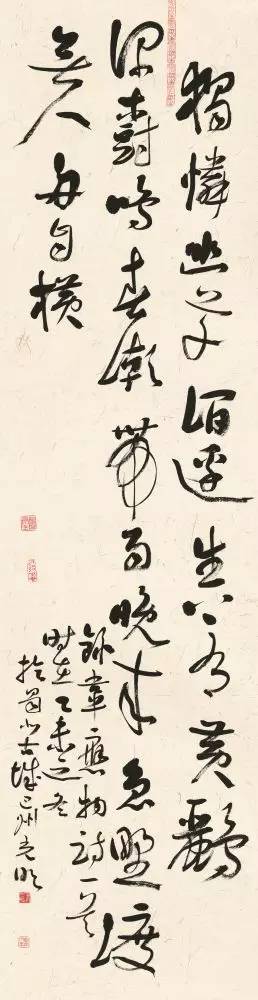 獨憐幽草澗邊生上有黃鸝
深樹鳴春潮帶雨晚來急野渡
無人舟自橫
錄韋應物詩一首
時在乙未之冬
於蜀北古城巴州